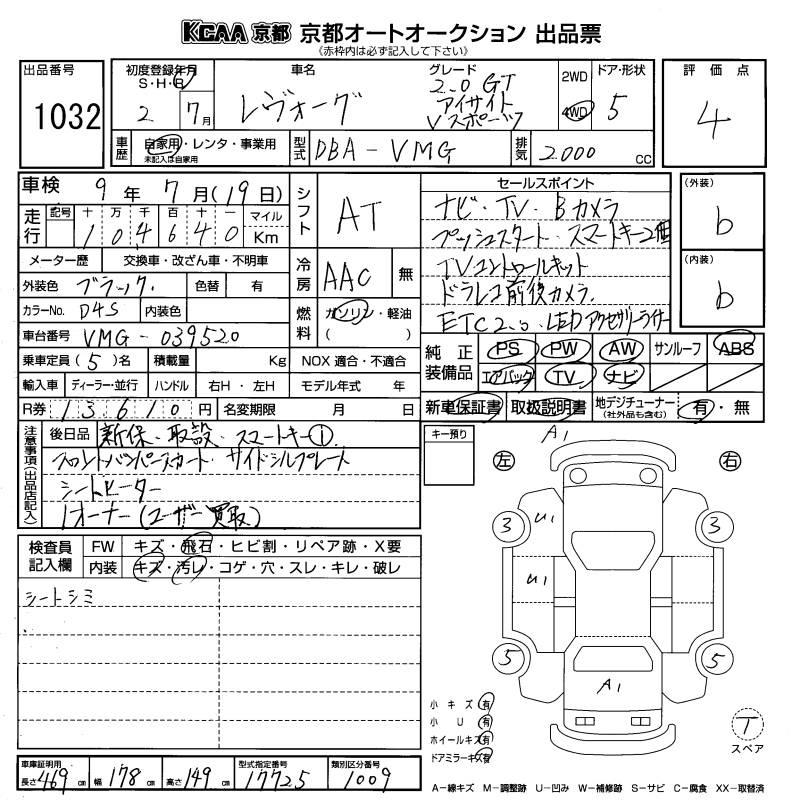 KCAA 京都 京都オートオークション 出品票
(赤枠内は必ず記入して下さい)
出品番号
1032
初度登録年月
S・H・R
2 7月
車名
レヴォーグ
グレード
2.0 GT
アイサイト
Vスポーツ
2WD
4WD
ドア・形状
5
評価点
4
車歴
自家用・レンタ・事業用
未記入は自家用
型式
DBA-VMG
排気
2000 cc
車検 9年 7月(19日)
走行
記号 十 万 千 百 十 一 マイル
1 0 4 6 4 0 Km
シフト
AT
セールスポイント
ナビ・TV・Bカメラ
プッシュスタート・スマートキー2個
TVコントロールキット
ドラレコ前後カメラ
ETC2.0・LEDアクセサリーライナー
(外装)
b
(内装)
b
メーター歴 交換車・改ざん車・不明車
外装色 ブラック 色替 有
カラーNo. D4S 内装色
冷房
AAC 無
燃料
ガソリン・軽油
( )
車台番号 VMG-039520
乗車定員 (5)名 積載量 Kg NOX 適合・不適合
輸入車 ディーラー・並行 ハンドル 右H・左H モデル年式 年
R券 13610円 名変期限 月 日
純正装備品
PS PW AW サンルーフ ABS
エアバック TV ナビ
新車保証書 取扱説明書 地デジチューナー (社外品も含む) 有・無
注意事項(出品店記入)
後日品 新保・取説・スマートキー①
フロントバンパースカート・サイドシルプレート
シートヒーター
1オーナー(ユーザー買取)
キー預り
検査員記入欄
FW キズ・飛石・ヒビ割・リペア跡・X要
内装 キズ・汚レ・コゲ・穴・スレ・キレ・破レ
シートシミ
A1
左 右
3 U1 3
U1
5 5
A1
小キズ 有
小U 有
ホイールキズ 有
ドアミラーキズ 有
T
スペア
車庫証明用
長さ 469cm 幅 178cm 高さ 149cm
型式指定番号
17725
類別区分番号
1009
A-線キズ M-調整跡 U-凹み W-補修跡 S-サビ C-腐食 XX-取替済